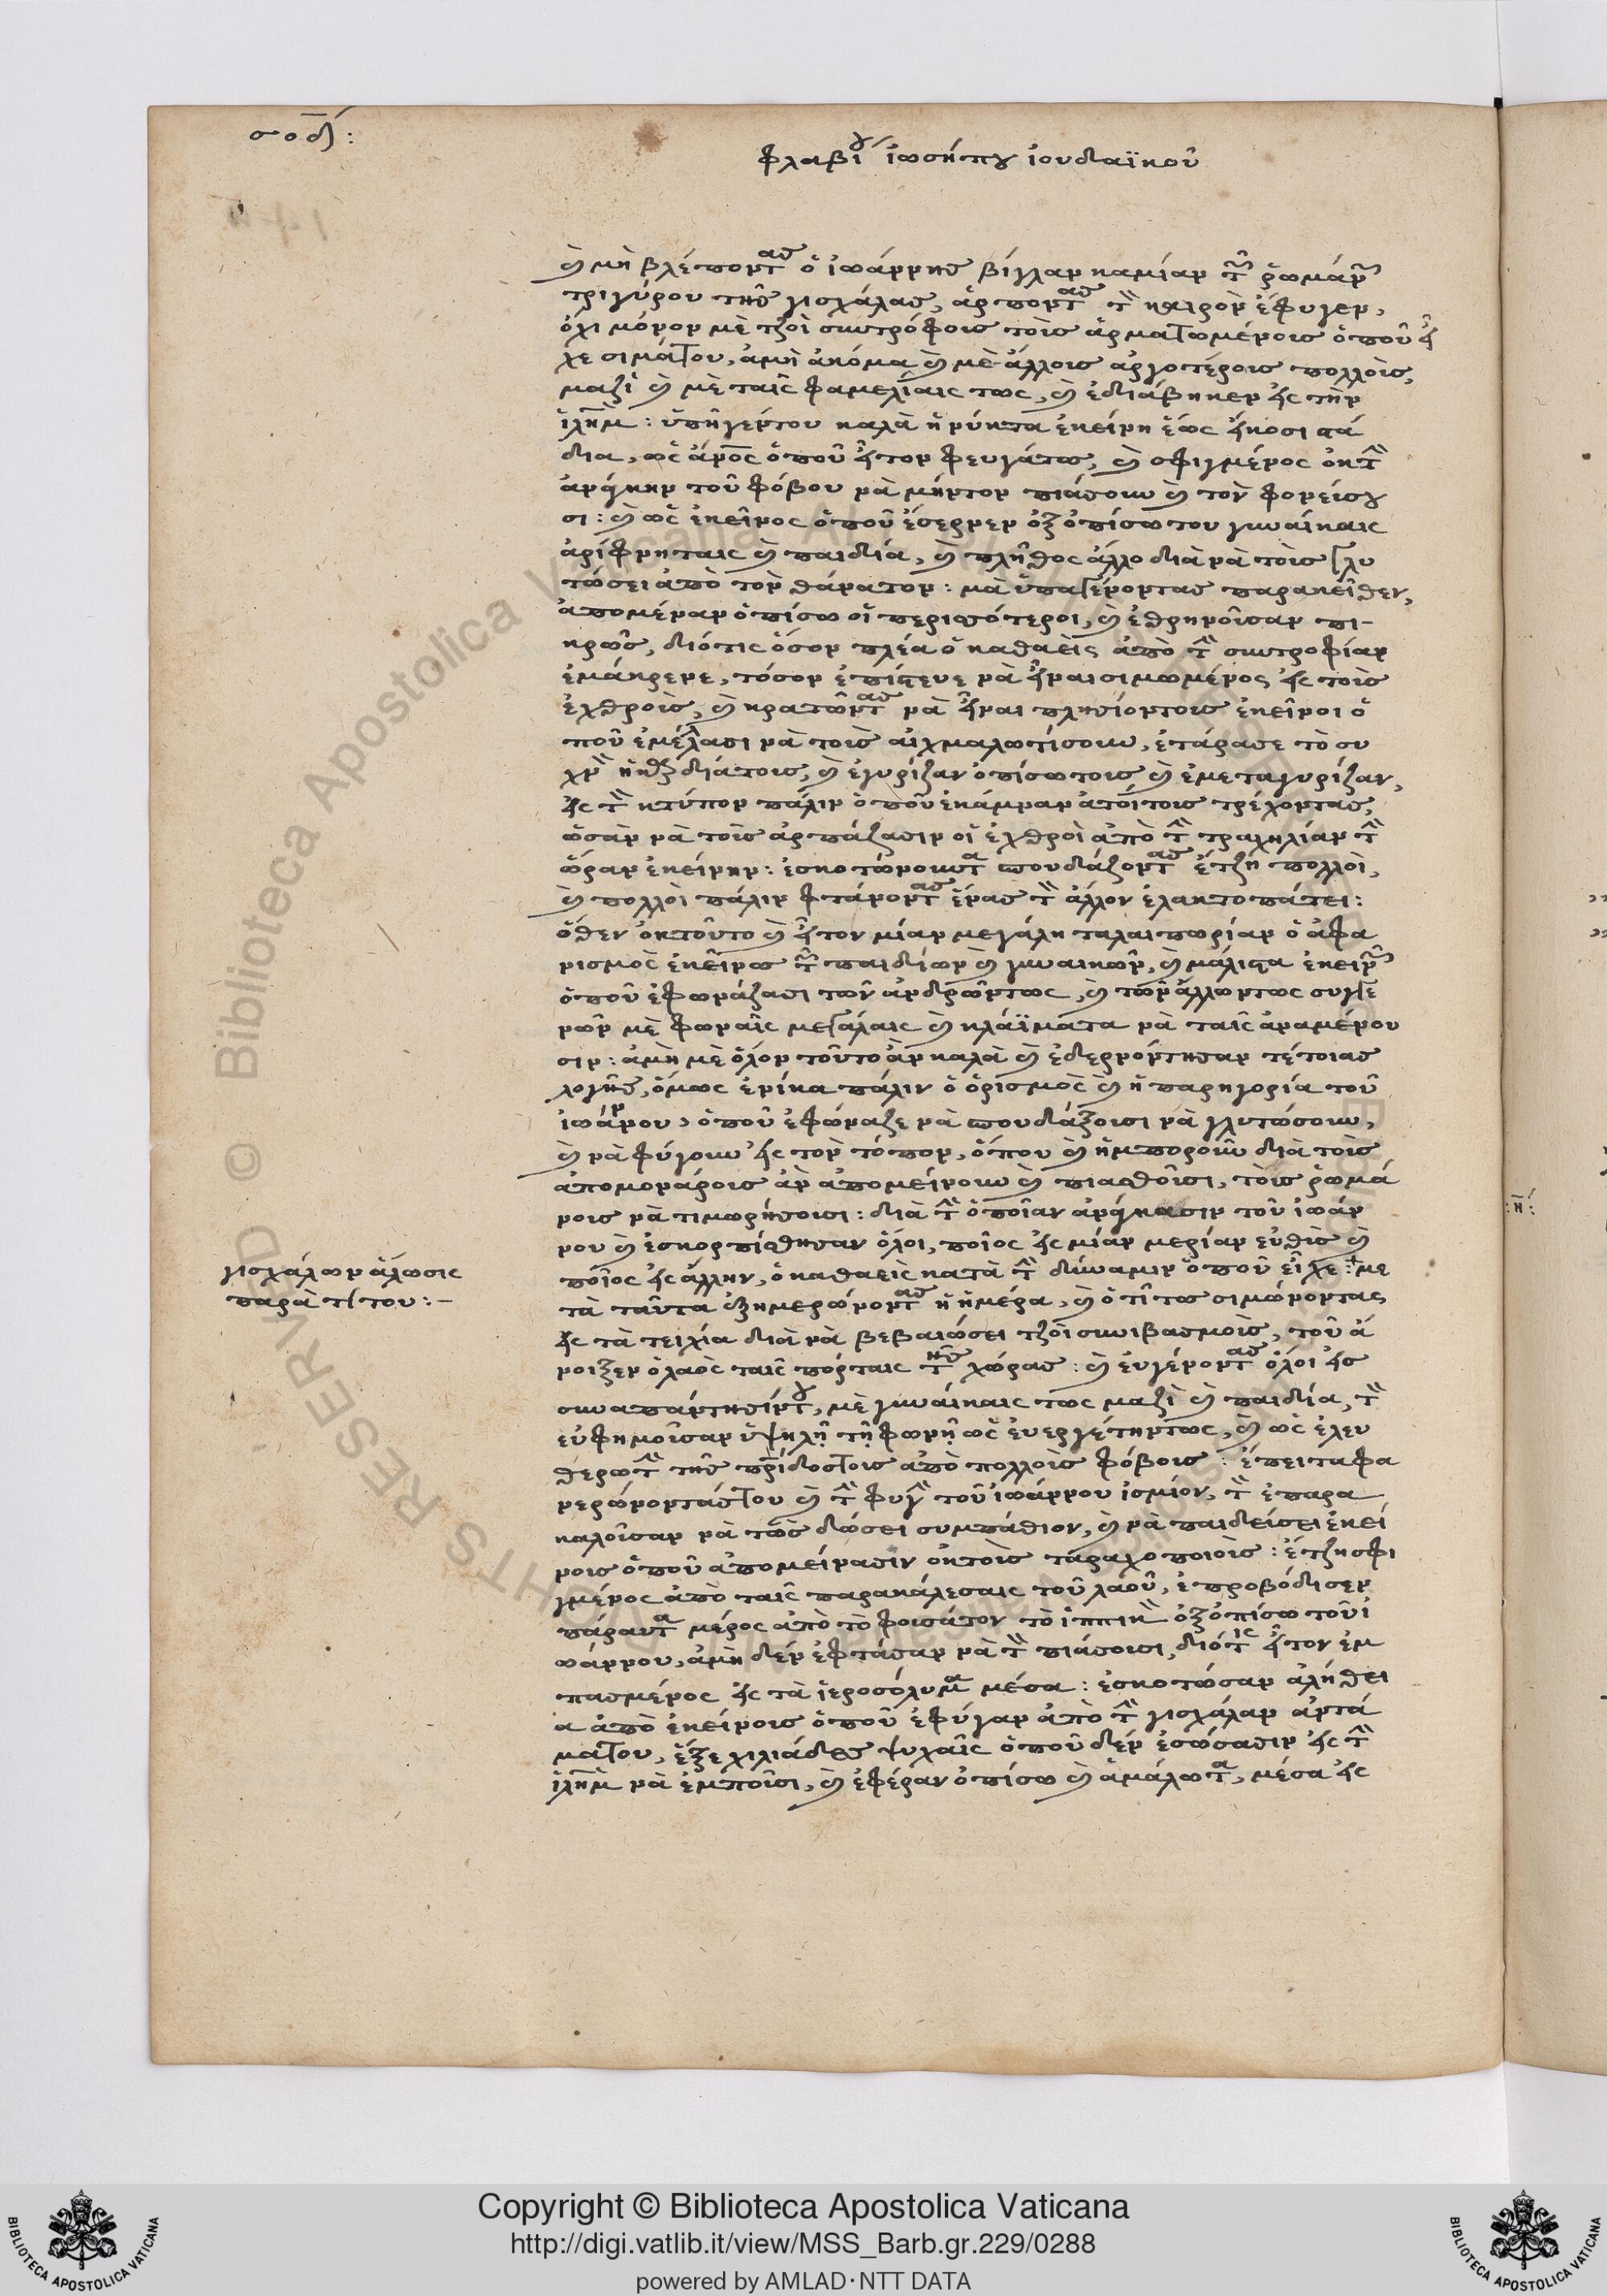 σοδ́:
φλαβίου ἰωσήπου ἰουδαϊκοῦ
καὶ μὴ βλέποντας ὁ ἰωάννης βίγλαν καμίαν τῶν ῥωμάνων
τριγύρου τῆς γισχάλας, ἁρποντας τὸν καιρὸν ἔφυγεν,
ὄχι μόνον μὲ τζοὶ συντρόφοις τοῖς ἁρματωμένοις ὁποῦ εἶ
χε σιμάτου, ἀμὴ ἀκόμα καὶ μὲ ἄλλοις ἀργοτέροις πολλοῖς,
μαζὶ καὶ μὲ ταῖς φαμελίαις τως, καὶ ἐδιάβηκεν εἰς τὴν
ἱλημ̀: ὑπήγεντου καλὰ ἡ νύκτα ἐκείνη ἕως εἴκοσι στά
δια, ὡς ἄνος ὁποῦ ἦτον φευγάτος, καὶ σφιγμένος ὀκ τὴν
ἀνάγκην τοῦ φόβου νὰ μήντον πιάσουν καὶ τὸν φονεύσου
σι: καὶ ὡς ἐκεῖνος ὁποῦ ἔσερνεν ὀξοπίσω του γυναίκαις
ἀρίφνηταις καὶ παιδία, καὶ πλῆθος ἄλλο διὰ νὰ τοῖς γλυ
τώσει ἀπὸ τὸν θάνατον: μὰ ὑπαγένοντας παρακεῖθεν,
ἀπομέναν ὀπίσω οἱ περισσότεροι, καὶ ἐθρηνοῦσαν πι-
κρῶς, διότις ὅσον πλέα ὁ καθαεὶς ἀπὸ τὴν συντροφίαν
ἐμάκρενε, τόσον ἐπίστευε νὰ εἶναι σιμωμένος εἰς τοῖς
ἐχθροῖς, καὶ κρατῶντας νὰ εἶναι πλησίοντοις ἐκεῖνοι ὁ
ποῦ ἐμέλλασι νὰ τοῖς αἰχμαλωτίσουν, ἐτάρασε τὸ συ
διάτοις, καὶ ἐγυρίζαν ὀπίσωτοις καὶ ἐμεταγυρίζαν,
εἰς τὸν κτύπον πάλιν ὁποῦ ἐκάμναν ἀτοίτοις τρέχοντας,
ὡσὰν νὰ τοῖς ἁρπάζασιν οἱ ἐχθροὶ ἀπὸ τὴν τραχηλίαν τὴν
ὥραν ἐκείνην: ἐσκοτώνουντα σπουδάζοντας ἔτζη πολλοὶ,
καὶ πολλοὶ πάλιν φτάνοντας ἕνας τὸν ἄλλον ἐλακτοπάτει:
ὅθεν ὀκτοῦτο καὶ ἦτον μίαν μεγάλη ταλαιπωρίαν ὁ ἀφα
νισμὸς ἐκεῖνος τῶν παιδίων καὶ γυναικῶν, καὶ μάλιστα ἐκεινῶν
ὁποῦ ἐφωνάζασι τῶν ἀνδρῶντως, καὶ τῶν ἄλλωντως συγγε
νῶν μὲ φωναῖς μεγάλαις καὶ κλάϊματα νὰ ταῖς ἀναμένου
σιν: ἀμὴ μὲ ὅλον τοῦτο ἂν καλὰ καὶ ἐδερνόντησαν τέτοιας
λογῆς, ὅμως ἐνίκα πάλιν ὁ ὁρισμὸς καὶ ἡ παρηγορία τοῦ
ἰωάννου, ὁποῦ ἐφώναζε νὰ σπουδάξουσι νὰ γλυτώσουν,
καὶ νὰ φύγουν εἰς τὸν τόπον, ὅπου καὶ ἡμποροῦν διὰ τοῖς
ἀπομονάροις ἂν ἀπομείνουν καὶ πιασθοῦσι, τοῖς ῥωμά
νοις νὰ τιμωρήσουσι: διὰ τὴν ὁποῖαν ἀνάγκασιν τοῦ ἰωάν
νου καὶ ἐσκορπίσθησαν ὅλοι, ποῖος εἰς μίαν μερίαν εὐθὶς καὶ
ποῖος εἰς ἄλλην, ὁ καθαεὶς κατὰ τὴν δύναμιν ὁποῦ εἶχε: με
τὰ ταῦτα ξημερώνοντας ἡ ἡμέρα, καὶ ὁ τῖτος σιμώνοντας
εἰς τὰ τειχία διὰ νὰ βεβαιώσει τζοὶ συνιβασμοῖς, τοῦ ἀ
νοιξεν ὁ λαὸς ταῖς πόρταις τῆς χώρας: καὶ ἐυγένοντας ὅλοι εἰς
συναπάντησίντου, μὲ γυναίκαις τως μαζὶ καὶ παιδία, τὸν
εὐφημοῦσαν ὑψηλῇ τῇ φωνῇ ὡς ἐυεργέτηντως, καὶ ὡς ἐλευ
θερωτὴν τῆς πρίδοςτοις ἀπὸ πολλοῖς φόβοις: ἔπειτα φα
νερώνοντάςτου καὶ τὴν φυγὴν τοῦ ἰωάννου ἰσμιόν, τὸν ἐπαρα
καλοῦσαν νὰ τῶς δώσει συμπάθιον, καὶ νὰ παιδεύσει ἐκεί
νοις ὁποῦ ἀπομείνασιν ὀκ τοῖς ταραχοποιοῖς: ἔτζη σφι
γμένος ἀπὸ ταῖς παρακάλεσαις τοῦ λαοῦ, ἐπροβόδισεν
πάραυτα μέρος ἀπὸ τὸ φουσάτον τὸ ἱππικὸν ὀξοπίσω τοῦ ἰ
ωάννου, ἀμὴ δὲν ἐφτάσαν νὰ τὸν πιάσουσι, διότις ἦτον ἐμ
πασμένος εἰς τὰ ἱεροσόλυμα μέσα: ἐσκοτώσαν ἀλήθει
α ἀπὸ ἐκείνοις ὁποῦ ἐφύγαν ἀπὸ τὴν γισχάλαν ἀντά
ματου, ἕξε χιλιάδες ψυχαῖς ὁποῦ δὲν ἐσώσασιν εἰς τὴν
ἱλημ̀ νὰ ἐμποῦσι, καὶ ἐφέραν ὀπίσω καὶ ἀμάλωτα, μέσα εἰς
γισχάλων ἅλωσις
παρὰ τίτου:-
Copyright © Biblioteca Apostolica Vaticana
http://digi.vatlib.it/view/MSS_Barb.gr.229/0288
powered by AMLAD·NTT DATA